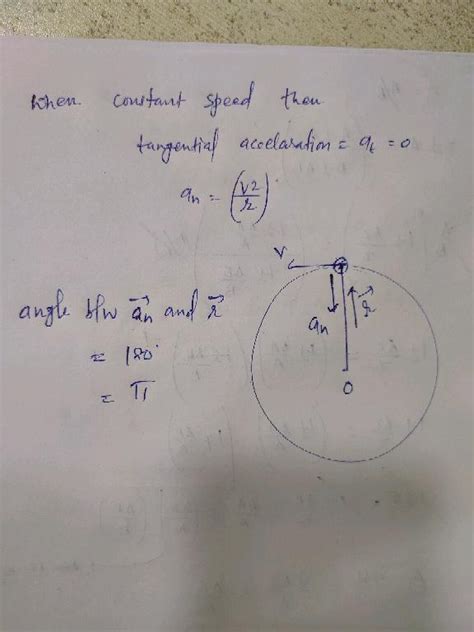 when constant speed then
tangential accelaration = a_t = 0
a_n = (v2/r)
angle b/w a_n⃗ and r⃗
= 180°
= π
v
a_n
r⃗
O